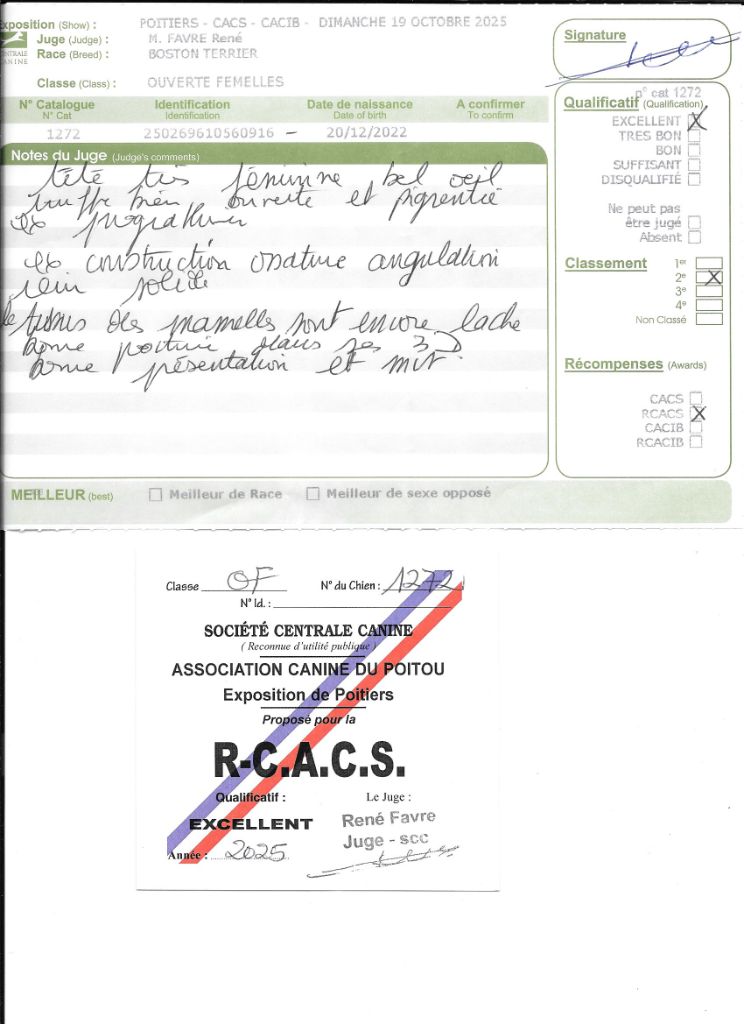 Exposition (Show) : POITIERS - CACS - CACIB - DIMANCHE 19 OCTOBRE 2025
Juge (Judge) : M. FAVRE René
Race (Breed) : BOSTON TERRIER
CENTRALE CANINE
Classe (Class) : OUVERTE FEMELLES
Signature
N° Catalogue Identification Date de naissance A confirmer
N° Cat Identification Date of birth To confirm
1272 250269610560916 - 20/12/2022
n° cat 1272
Qualificatif (Qualification)
EXCELLENT X
TRES BON
BON
SUFFISANT
DISQUALIFIÉ
Ne peut pas
être jugé
Absent
Notes du Juge (Judge's comments)
tête très féminine bel oeil
truffe bien ouverte et pigmentié
ex
ex construction angulation
rein solide
le tissus des mamelles sont encore lache
bonne dans ses 3 D
bonne présentation et
Classement
1er
2e X
3e
4e
Non Classé
Récompenses (Awards)
CACS
RCACS X
CACIB
RCACIB
MEILLEUR (best) Meilleur de Race Meilleur de sexe opposé
Classe OF N° du Chien : 1272
N° Id. :
SOCIÉTÉ CENTRALE CANINE
( Reconnue d'utilité publique )
ASSOCIATION CANINE DU POITOU
Exposition de Poitiers
Proposé pour la
R-C.A.C.S.
Qualificatif : Le Juge :
EXCELLENT René Favre
Juge - scc
Année : 2025